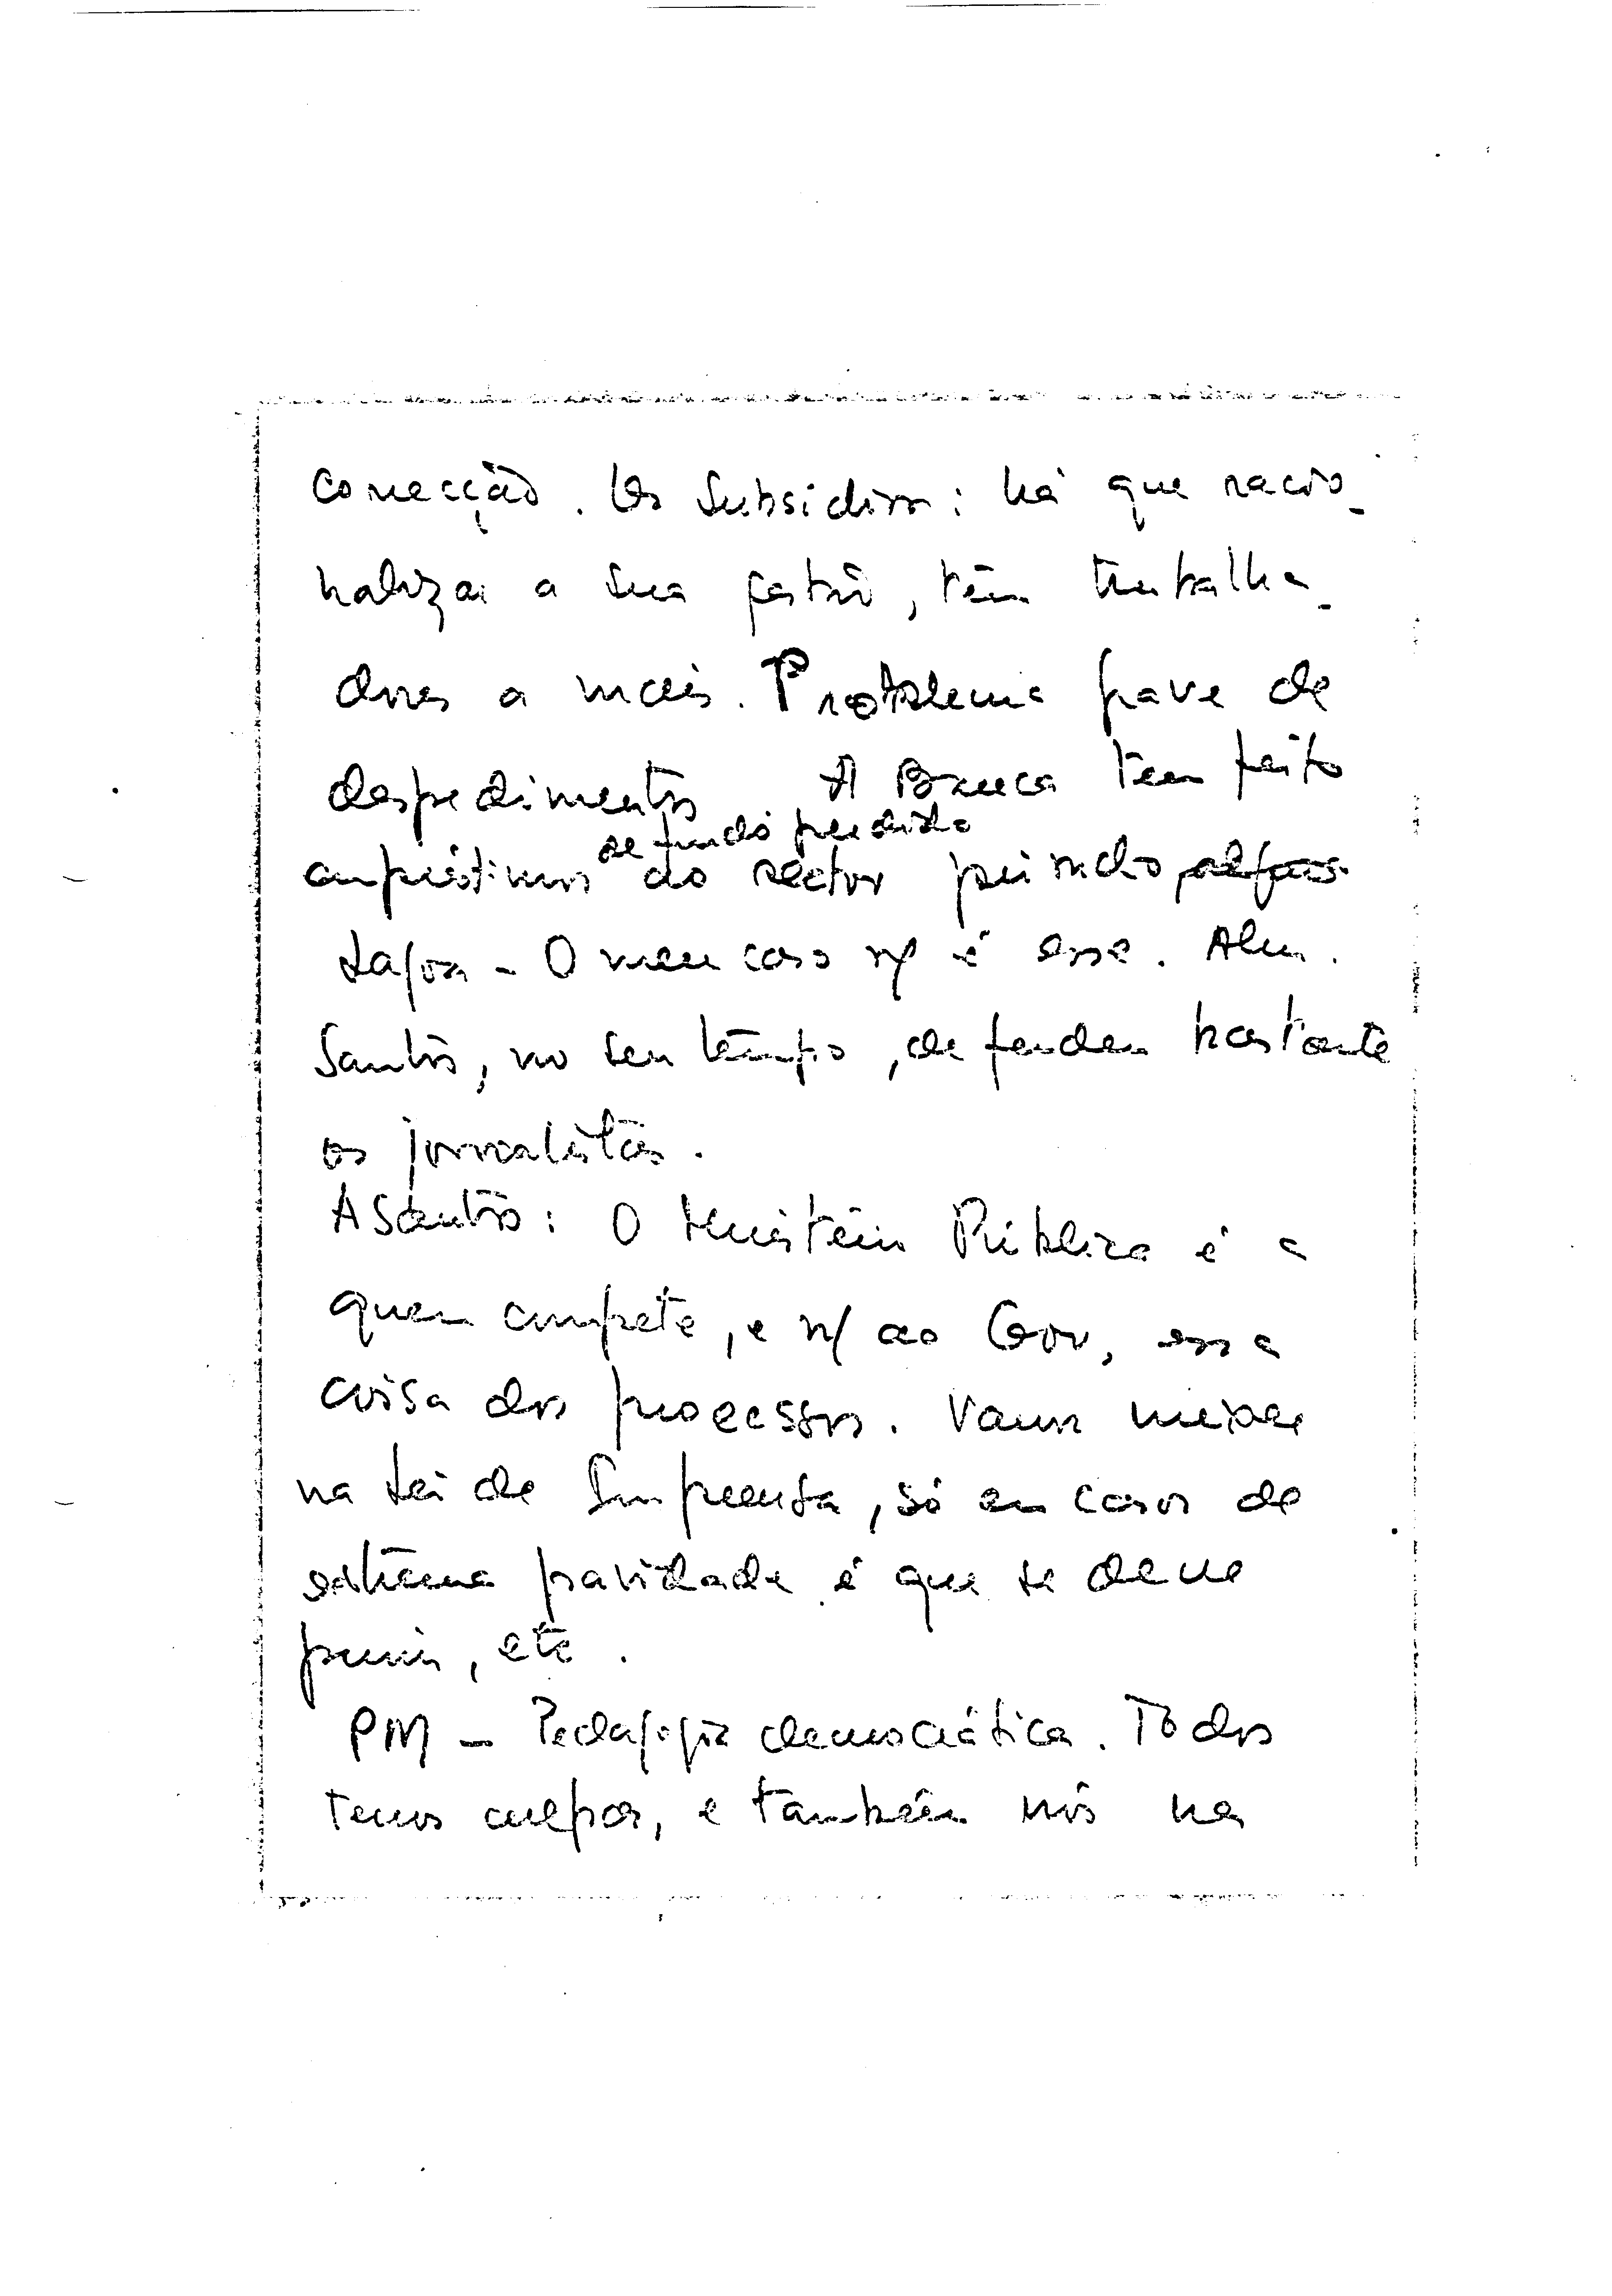 correcção. Os subsídios: há que racio-
nalizar a sua gestão, têm trabalha-
dores a mais. Problema grave de
despedimentos A Banca tem feito
de fundo perdido
empréstimos ao sector periodico,
Lagoa - O meu caso n/ é esse. Alm.
Santos, no seu tempo, defendeu bastante
os jornalistas.
A Santos: O Ministério Público é a
quem compete, e n/ ao Gov, essa
coisa dos processos. Vamos mexer
na Lei de Imprensa, só em casos de
extrema gravidade é que se deve
punir, etc.
PM - Pedagogia democrática. Todos
temos culpas, e também nós na